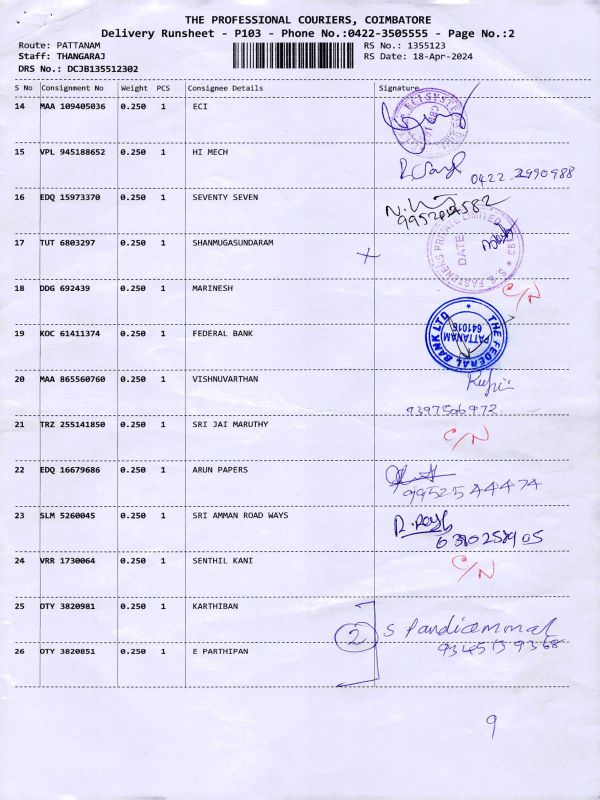 THE PROFESSIONAL COURIERS, COIMBATORE
Delivery Runsheet - P103 - Phone No.:0422-3505555 - Page No.:2
Route: PATTANAM RS No.: 1355123
Staff: THANGARAJ RS Date: 18-Apr-2024
DRS No.: DCJB135512302
S No Consignment No Weight PCS Consignee Details Signature
14 MAA 109405036 0.250 1 ECI
15 VPL 945188652 0.250 1 HI MECH
0422 2990988
16 EDQ 15973370 0.250 1 SEVENTY SEVEN
17 TUT 6803297 0.250 1 SHANMUGASUNDARAM
S.S. FASTENERS PRIVATE LIMITED * CB
DATE:
18 DDG 692439 0.250 1 MARINESH
C/N
19 KOC 61411374 0.250 1 FEDERAL BANK
THE FEDERAL BANK LTD
PATTANAM
641016
20 MAA 865560760 0.250 1 VISHNUVARTHAN
9397506972
21 TRZ 255141850 0.250 1 SRI JAI MARUTHY
C/N
22 EDQ 16679686 0.250 1 ARUN PAPERS
9952544474
23 SLM 5260045 0.250 1 SRI AMMAN ROAD WAYS
24 VRR 1730064 0.250 1 SENTHIL KANI
C/N
25 OTY 3820981 0.250 1 KARTHIBAN
2 S Pandiammal
26 OTY 3820851 0.250 1 E PARTHIPAN
9